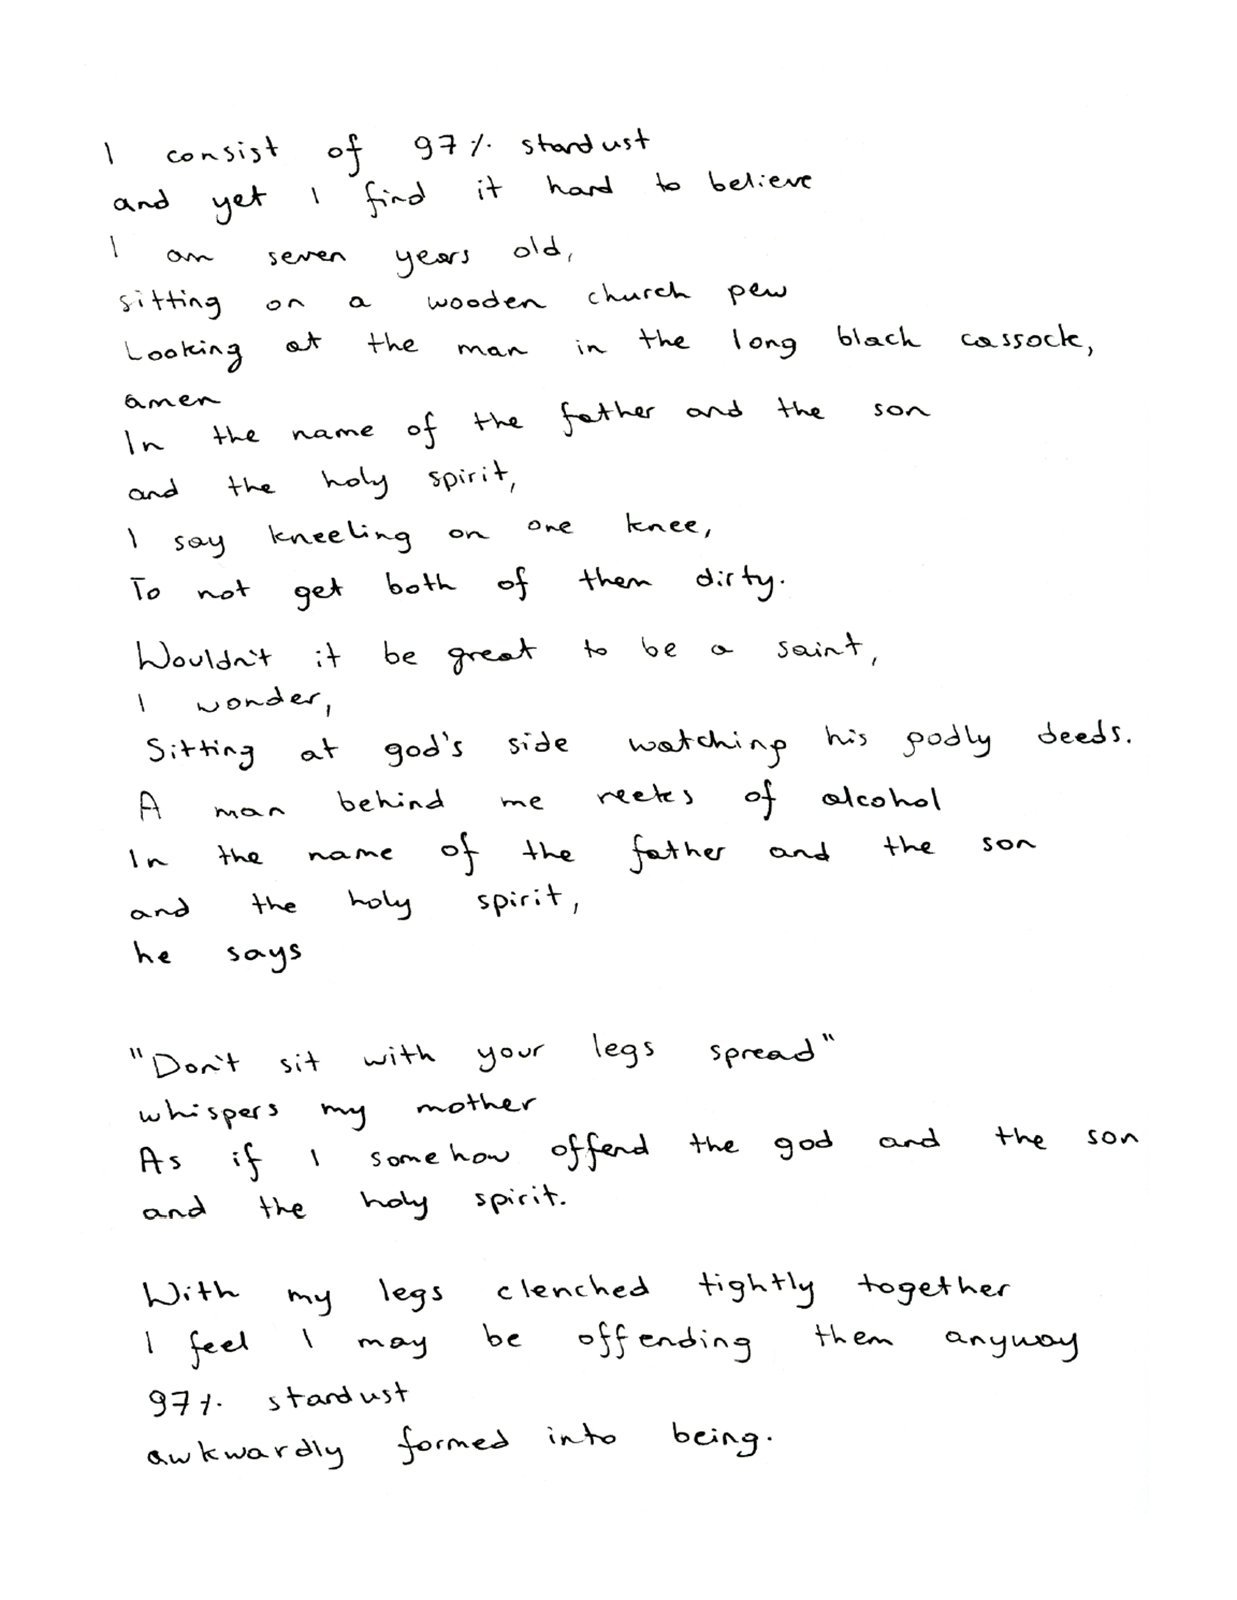 I consist of 97% stardust
and yet I find it hard to believe
I am seven years old,
sitting on a wooden church pew
Looking at the man in the long black cassock,
amen
In the name of the father and the son
and the holy spirit,
I say kneeling on one knee,
To not get both of them dirty.
Wouldn't it be great to be a saint,
I wonder,
Sitting at god's side watching his godly deeds.
A man behind me reeks of alcohol
In the name of the father and the son
and the holy spirit,
he says
"Don't sit with your legs spread"
whispers my mother
As if I somehow offend the god and the son
and the holy spirit.
With my legs clenched tightly together
I feel I may be offending them anyway
97% stardust
awkwardly formed into being.